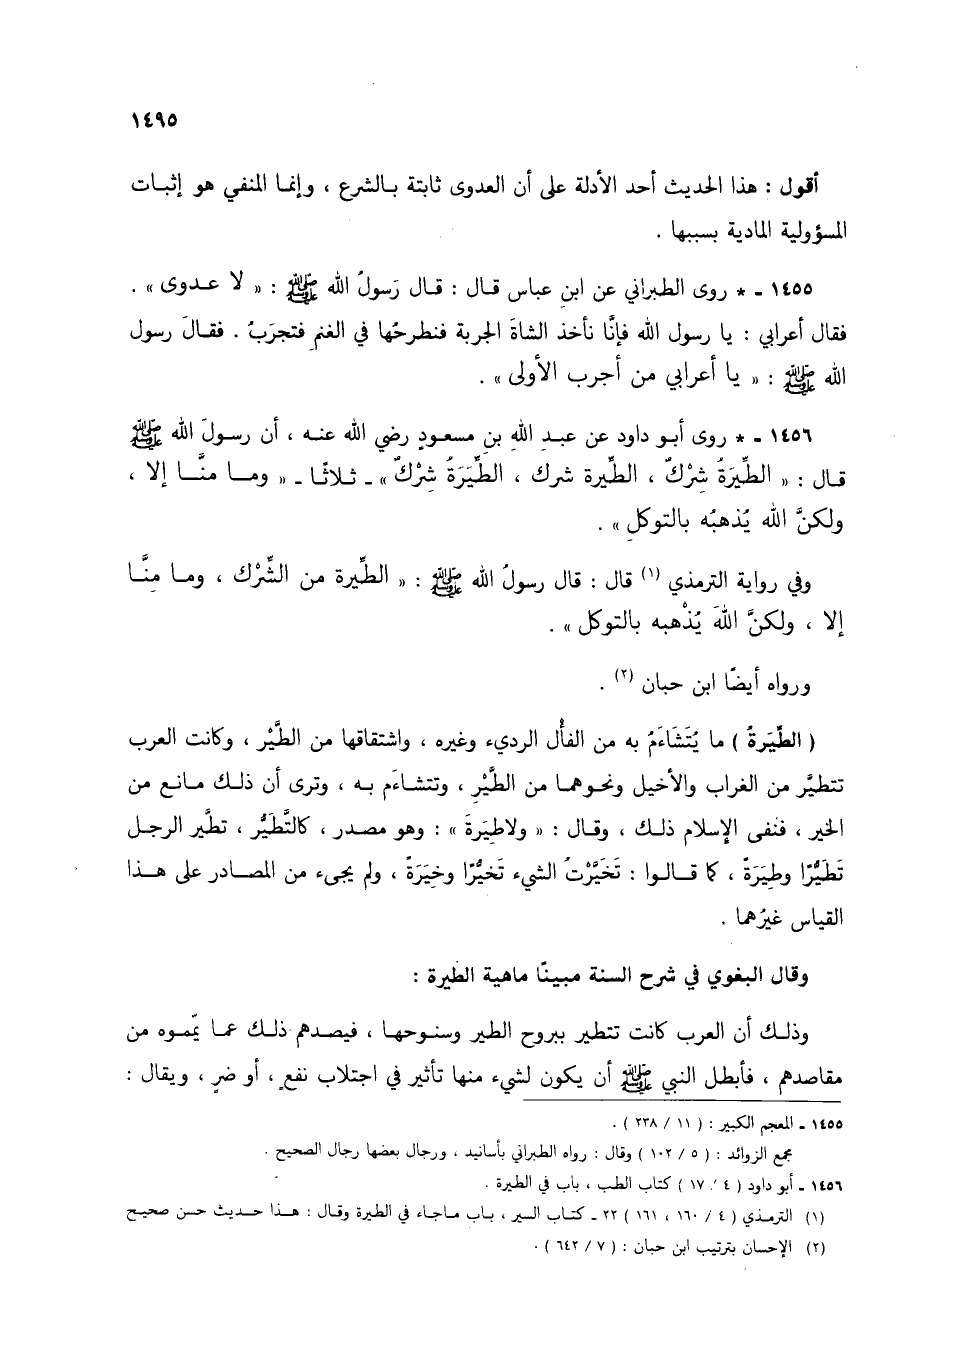 ١٤٩٥
أقول : هذا الحديث أحد الأدلة على أن العدوى ثابتة بالشرع ، وإنما المنفي هو إثبات
المسؤولية المادية بسببها .
١٤٥٥ - * روى الطبراني عن ابن عباس قال : قال رَسولُ الله ﷺ : « لا عدوى » .
فقال أعرابي : يا رسول الله فإنَّا نأخذ الشاةَ الجربة فنطرحُها في الغنمِ فتجرَبُ . فقالَ رسول
الله ﷺ : « يا أعرابي من أجرب الأولى » .
١٤٥٦ - * روى أبو داود عن عبدِ اللهِ بنِ مسعودٍ رضي الله عنه ، أن رسولَ الله ﷺ
قال : « الطِّيَرَةُ شِرْكٌ ، الطِّيرة شرك ، الطِّيَرَةُ شِرْكٌ » - ثلاثًا - « وما منَّا إلا ،
ولكنَّ الله يُذهبُه بالتوكلِ » .
وفي رواية الترمذي (١) قال : قال رسولُ الله ﷺ : « الطِّيرة من الشِّرْك ، وما مِنَّا
إلا ، ولكنَّ اللهَ يُذْهبه بالتوكل » .
ورواه أيضًا ابن حبان (٢) .
( الطيَرةُ ) ما يُتَشَاءَمُ به من الفأْل الرديء وغيره ، واشتقاقها من الطَّيْر ، وكانت العرب
تتطيَّر من الغراب والأخيل ونحوهما من الطَّيْرِ ، وتتشاءَم به ، وترى أن ذلك مانع من
الخير ، فنفى الإسلام ذلك ، وقال : « ولاطِيَرةَ » : وهو مصدر ، كالتَّطَيُّر ، تطيَّر الرجل
تَطَيُّرًا وطِيَرَةً ، كما قالوا : تَخَيَّرْتُ الشيء تَخيُّرًا وخِيَرَةً ، ولم يجيء من المصادر على هذا
القياس غيرُهما .
وقال البغوي في شرح السنة مبينًا ماهية الطيرة :
وذلك أن العرب كانت تتطير ببروح الطير وسنوحها ، فيصدهم ذلك عما يمّموه من
مقاصدهم ، فأبطل النبي ﷺ أن يكون لشيء منها تأثير في اجتلاب نفعٍ ، أو ضرٍ ، ويقال :
١٤٥٥ - المعجم الكبير : ( ١١ / ٢٣٨ ) .
مجمع الزوائد : ( ٥ / ١٠٢ ) وقال : رواه الطبراني بأسانيد ، ورجال بعضها رجال الصحيح .
١٤٥٦ - أبو داود ( ٤ / ١٧ ) كتاب الطب ، باب في الطيرة .
(١) الترمذي ( ٤ / ١٦٠ ، ١٦١ ) ٢٢ - كتاب السير ، باب ماجاء في الطيرة وقال : هذا حديث حسن صحيح
(٢) الإحسان بترتيب ابن حبان : ( ٧ / ٦٤٢ ) .